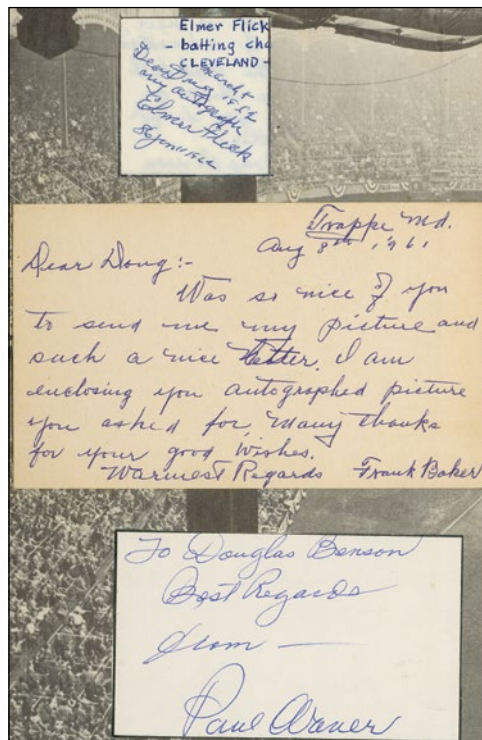 Elmer Flick
- batting cha
CLEVELAND -
March 8
Dear Doug 1962
my autograph
Elmer Flick
86 Jan 11 1962
Trappe Md.
Aug 8th, 1961
Dear Doug:-
Was so nice of you
to send me my picture and
such a nice letter. I am
enclosing you autographed picture
you asked for, Many thanks
for your good wishes.
Warmest Regards Frank Baker
To Douglas Benson
Best Regards
from —
Paul Waner